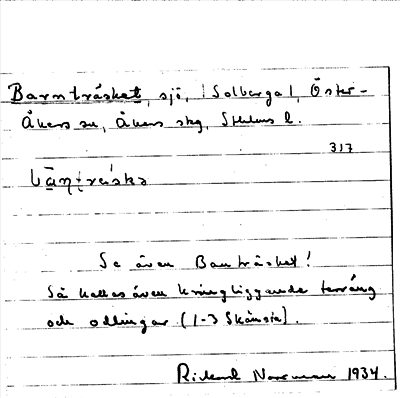 Barnträsket, sjö, (Solberga), Öster-
Åkers sn, Åkers skg, Sthlms l.
317
Se även Banträsket!
Så kallas även kringliggande terräng
och odlingar (1-3 Skånsta).
Rickard Norrman 1934.